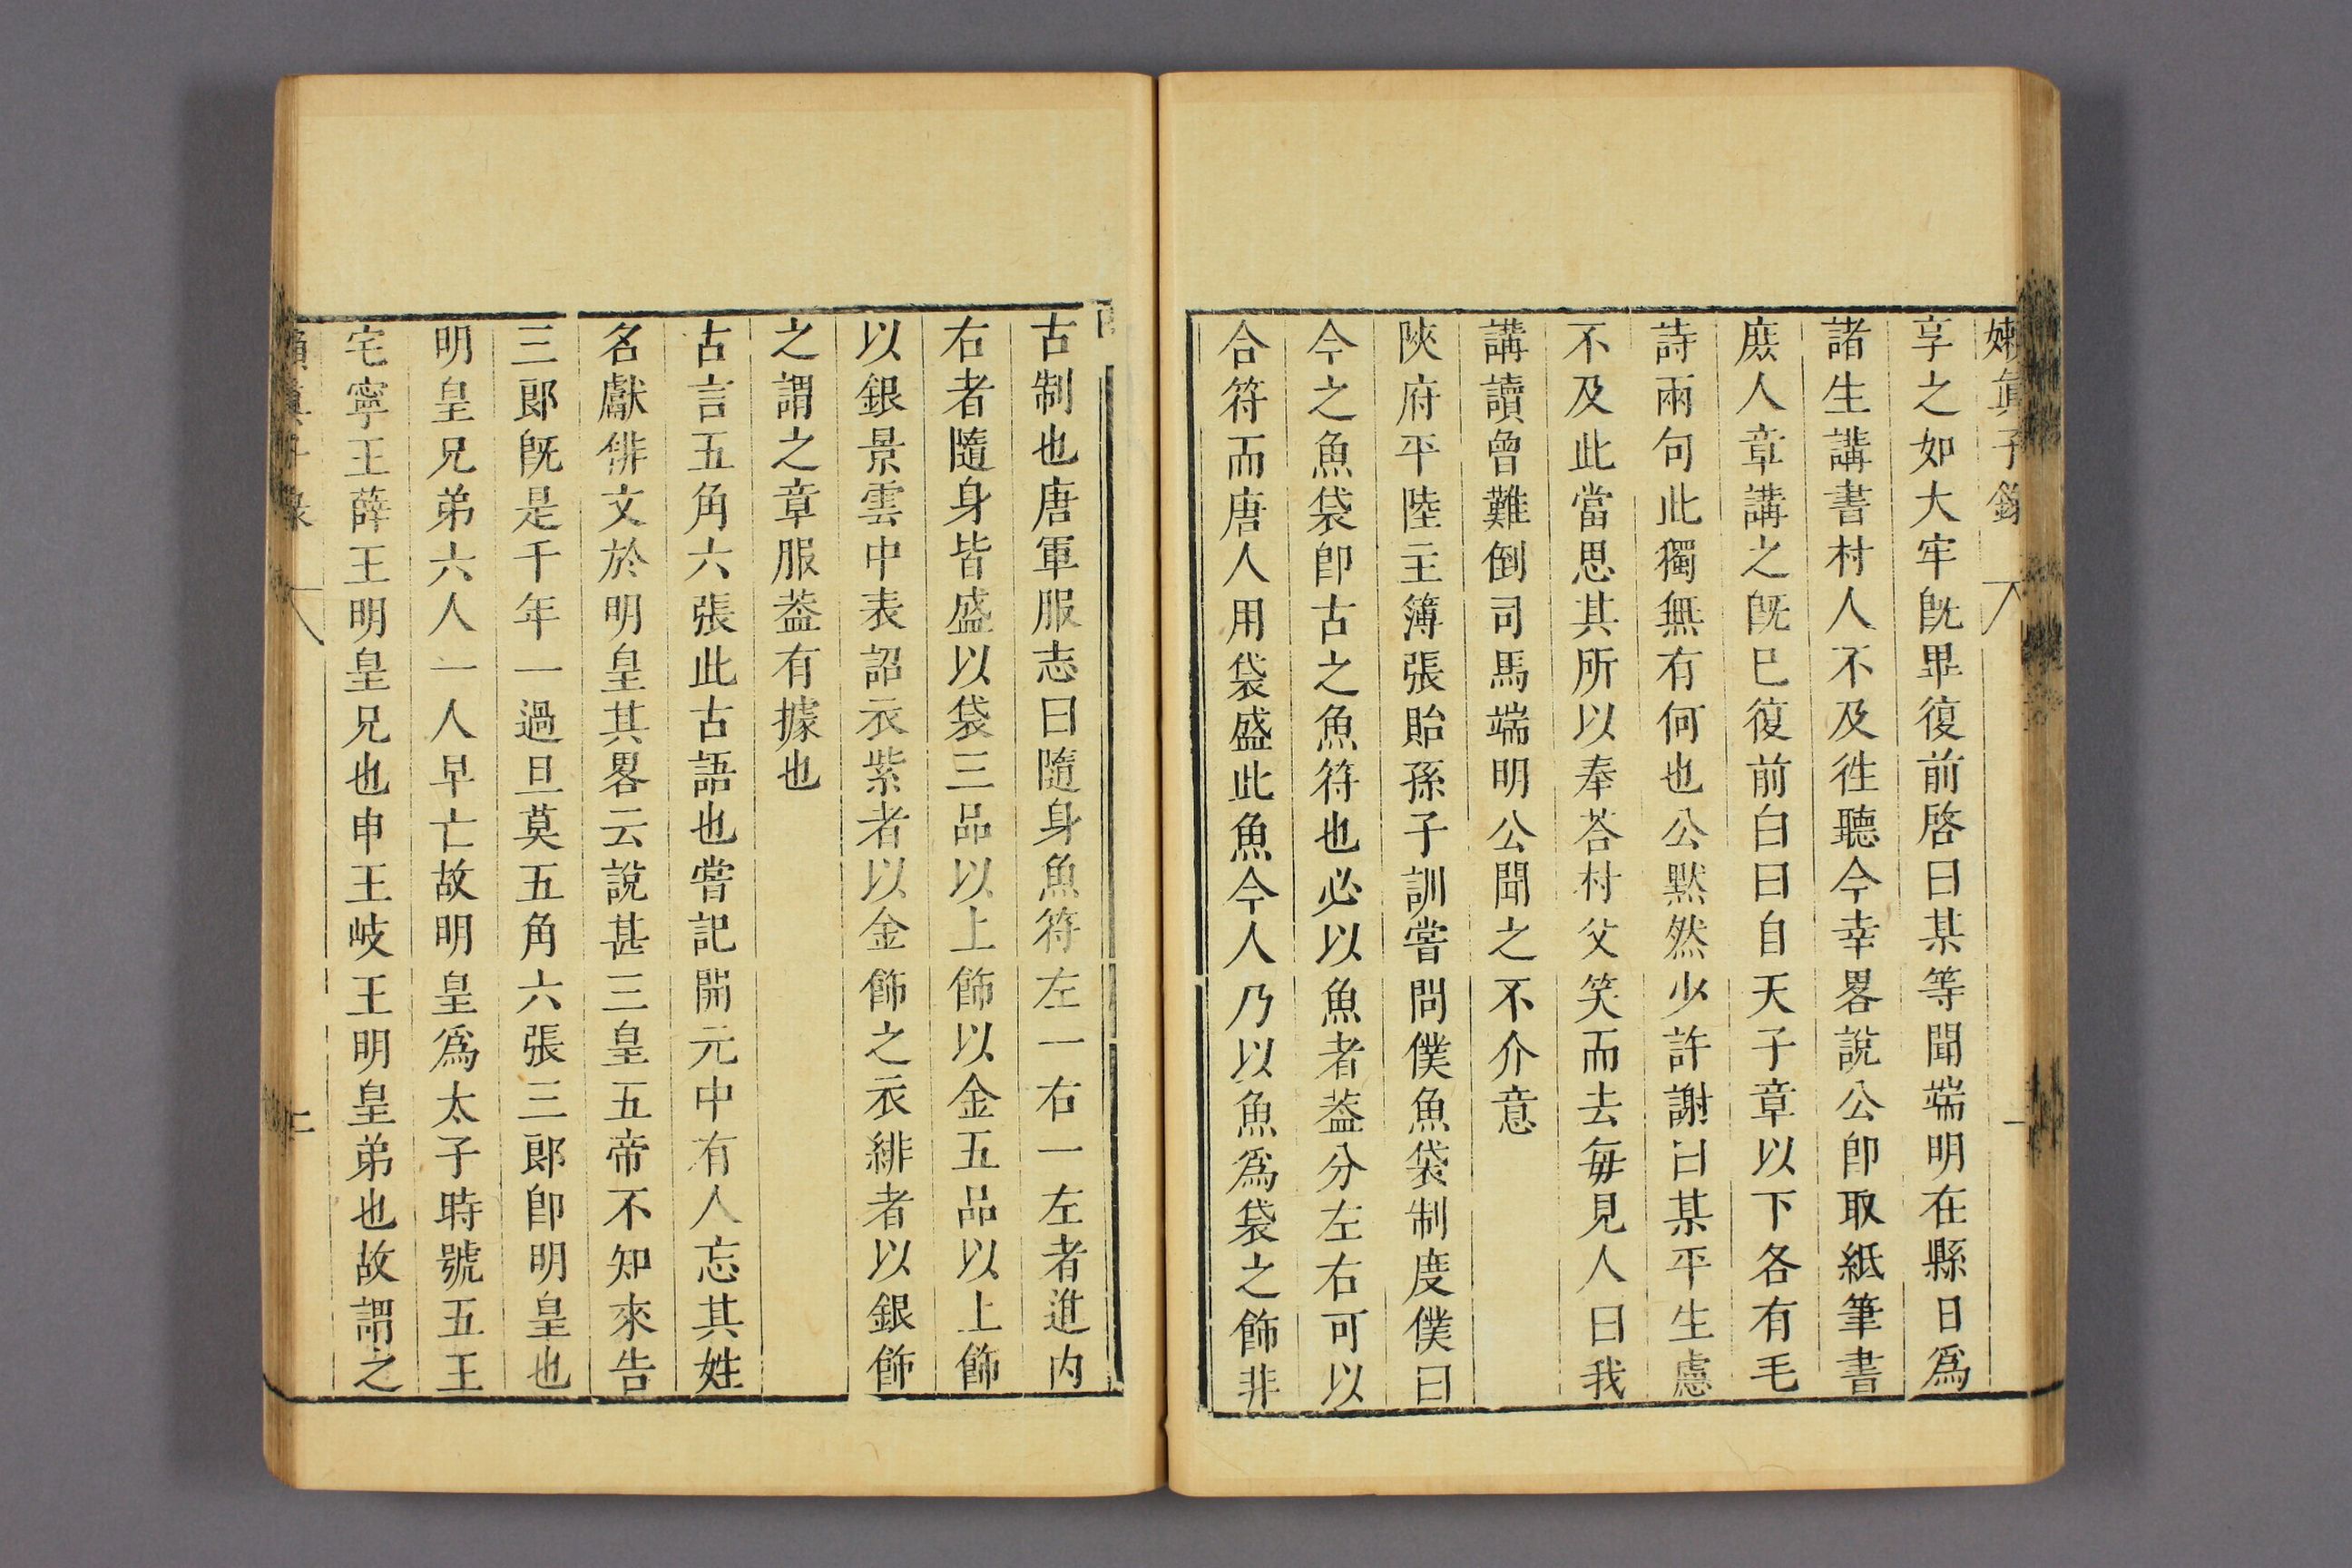 嬾眞子錄
一
享之如大牢旣畢復前啓曰某等聞端明在縣日爲
諸生講書村人不及徃聽今幸畧說公卽取紙筆書
庶人章講之旣已復前白曰自天子章以下各有毛
詩兩句此獨無有何也公默然少許謝曰某平生慮
不及此當思其所以奉荅村父笑而去每見人曰我
講讀曾難倒司馬端明公聞之不介意
陜府平陸主簿張貽孫子訓嘗問僕魚袋制度僕曰
今之魚袋卽古之魚符也必以魚者葢分左右可以
合符而唐人用袋盛此魚今人乃以魚爲袋之飾非
古制也唐軍服志曰隨身魚符左一右一左者進内
右者隨身皆盛以袋三品以上飾以金五品以上飾
以銀景雲中表詔衣紫者以金飾之衣緋者以銀飾
之謂之章服葢有據也
古言五角六張此古語也嘗記開元中有人忘其姓
名獻俳文於明皇其畧云說甚三皇五帝不知來告
三郎旣是千年一過且莫五角六張三郎卽明皇也
明皇兄弟六人一人早亡故明皇爲太子時號五王
宅寧王薛王明皇兄也申王岐王明皇弟也故謂之